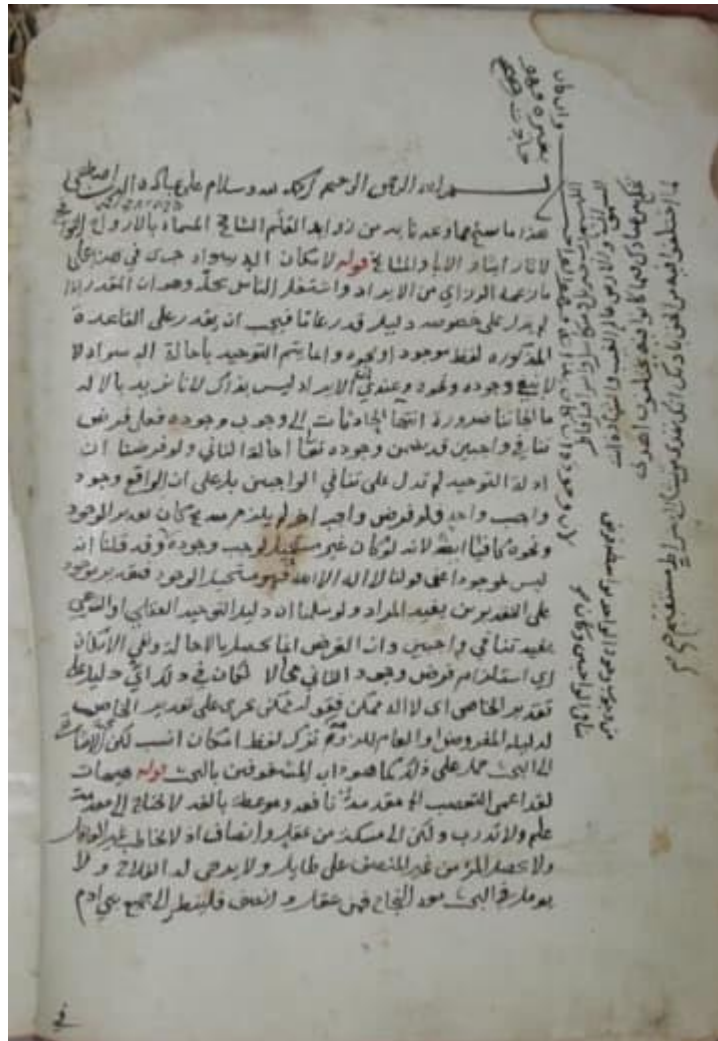 بسم الله الرحمن الرحيم الحمد لله وسلام على عباده الذين اصطفى
هذا ما سنح مما وعدنا به من زوايد العلم الشامخ المسماة بالارواح النوافخ
لاثار ايثار الابا والمشايخ قوله لامكان اله سواه جرى في هذا على
ما زعمه الرازي من الايراد واشتغل الناس بحله وهو ان المقدر اذا
لم يدل على خصوصه دليل قدر عاما فيجب ان يقدر على القاعدة
المذكورة لفظ موجود او نحوه وانما يتم التوحيد باحالة اله سواه لا
لا بنفي وجوده ونحوه وعندي ان الايراد ليس بذاك لانا نريد بالاله
ما الجاتنا ضرورة انتهاء الحادثات الى وجوب وجوده فعلى فرض
تنافي واجبين قد تضمن وجوده تعالى احالة الثاني ولو فرضنا ان
ادلة التوحيد لم تدل على تنافي الواجبين بل على ان الواقع وجود
واجب واحد ولو فرض واجب اخر لم يلزم منه مح كان تقدير الموجود
ونحوه كافيا ايضا لانه لو كان غير مستحيل لوجب وجوده وقد قلنا انه
ليس بموجود اعني قولنا لا اله الا الله فهو مستحيل الوجود فتقدير موجود
على التقديرين يفيد المراد ولو سلمنا ان دليل التوحيد العقلي او السمعي
يفيد تنافي واجبين وان الغرض انما يحصل بالاحالة ونفي الامكان
اي استلزام فرض وجود الثاني محالا لكان في ذلك اي دليل على
تقدير الخاص اي لا اله ممكن فقوله ممكن جرى على تقدير الخاص
لدليله المفروض او العام للزومه ترك لفظ امكان انسب لكن
الى البحث حمل على ذلك كما هو داب المشغوفين بالبحث قوله هيهات
لقد اعمى التعصب الخ مقدمة نافعة وموعظة بالغة لا تحتاج الى مقدمة
علم ولا تدرب ولكن الى مسكة من عقل وانصاف اذ لا نخاطب غير العاقل
ولا يحصل المرء من غير المنصف على طايل ولا يرجى له الفلاح ولا
يومل في البحث معه النجاح فمن عقل وانصف فلينظر الى جميع بني ادم
في
وان كان
بغيره فهو
حادث
السموات والارض عالم الغيب والشهادة انت
تحكم بين عبادك فيما كانوا فيه يختلفون اهدني
لما اختلف فيه من الحق باذنك انك تهدي من تشاء الى صراط مستقيم